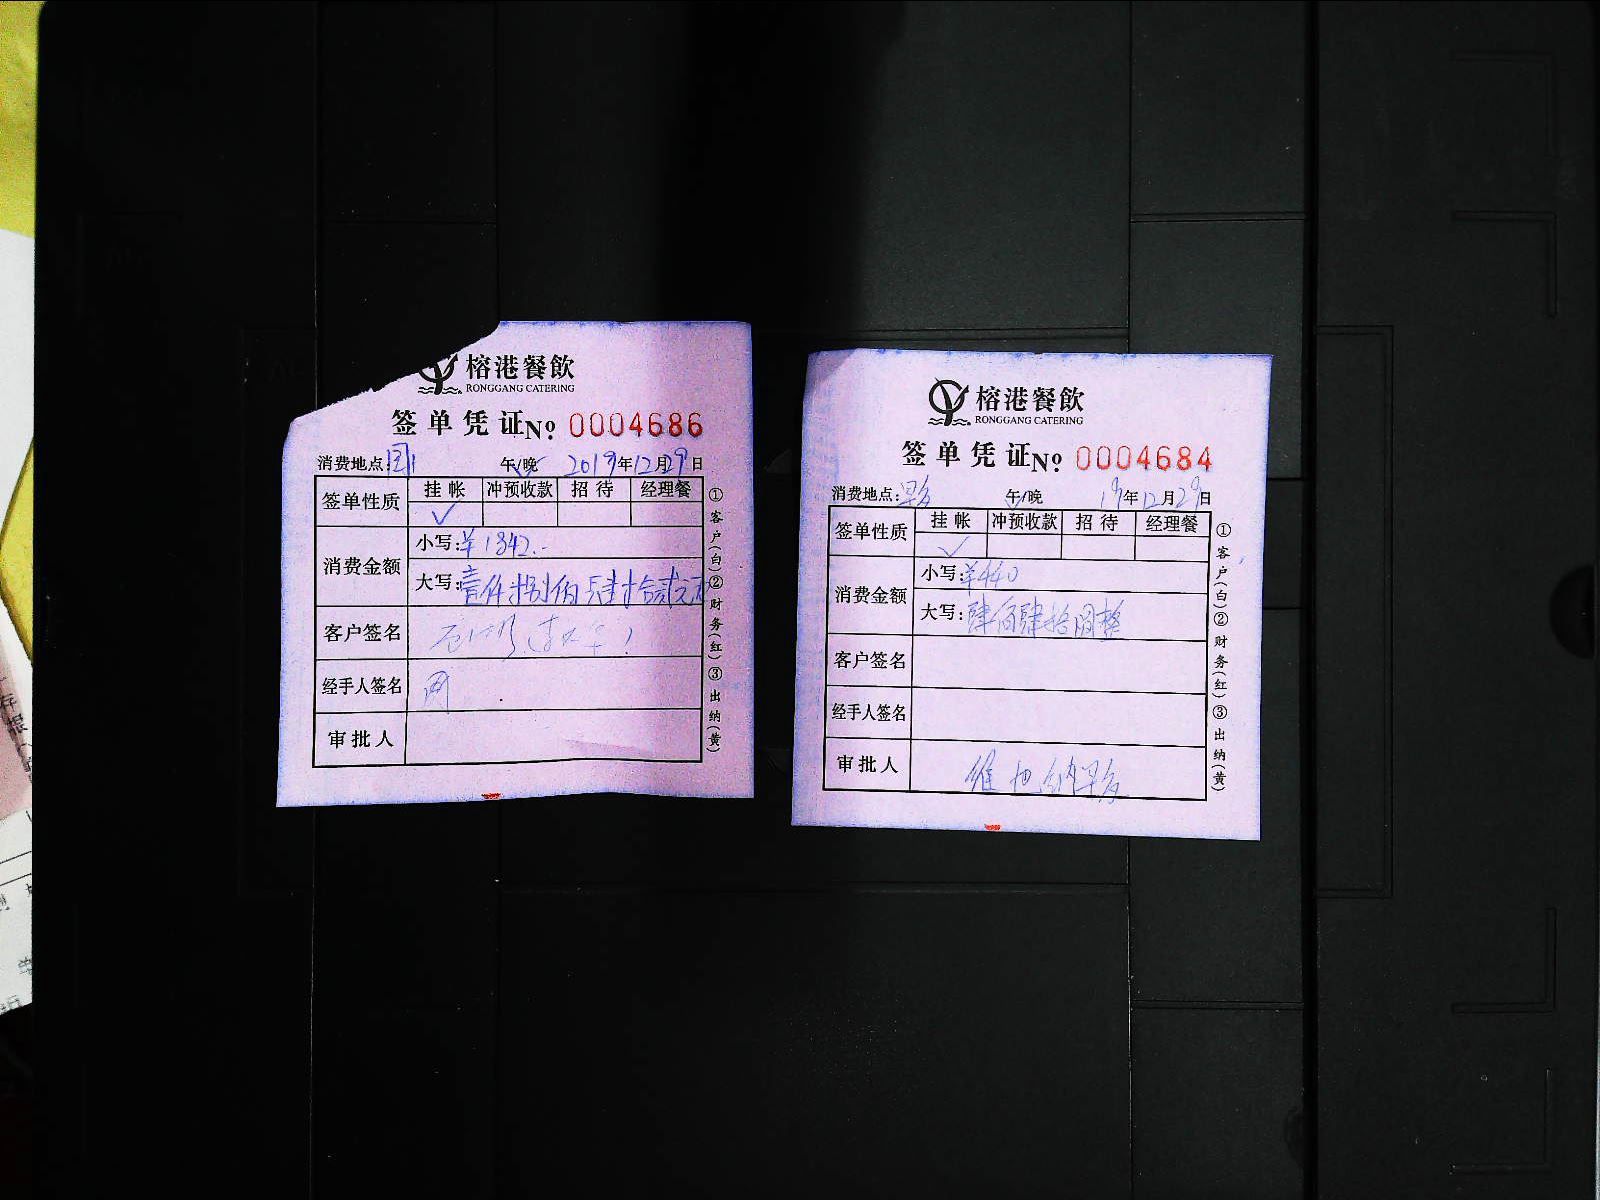 榕港餐飲
RONGGANG CATERING
签单凭证№ 0004686
消费地点: 午/晚 2019年12月29日
签单性质 挂帐 冲预收款 招待 经理餐
消费金额
小写:¥1842.-
大写:壹仟捌佰肆拾贰元
客户签名
经手人签名
审批人
①客户(白)②财务(红)③出纳(黄)
榕港餐飲
RONGGANG CATERING
签单凭证№ 0004684
消费地点: 午/晚 19年12月29日
签单性质 挂帐 冲预收款 招待 经理餐
消费金额
小写:¥440
大写:肆佰肆拾圆整
客户签名
经手人签名
审批人
①客户(白)②财务(红)③出纳(黄)